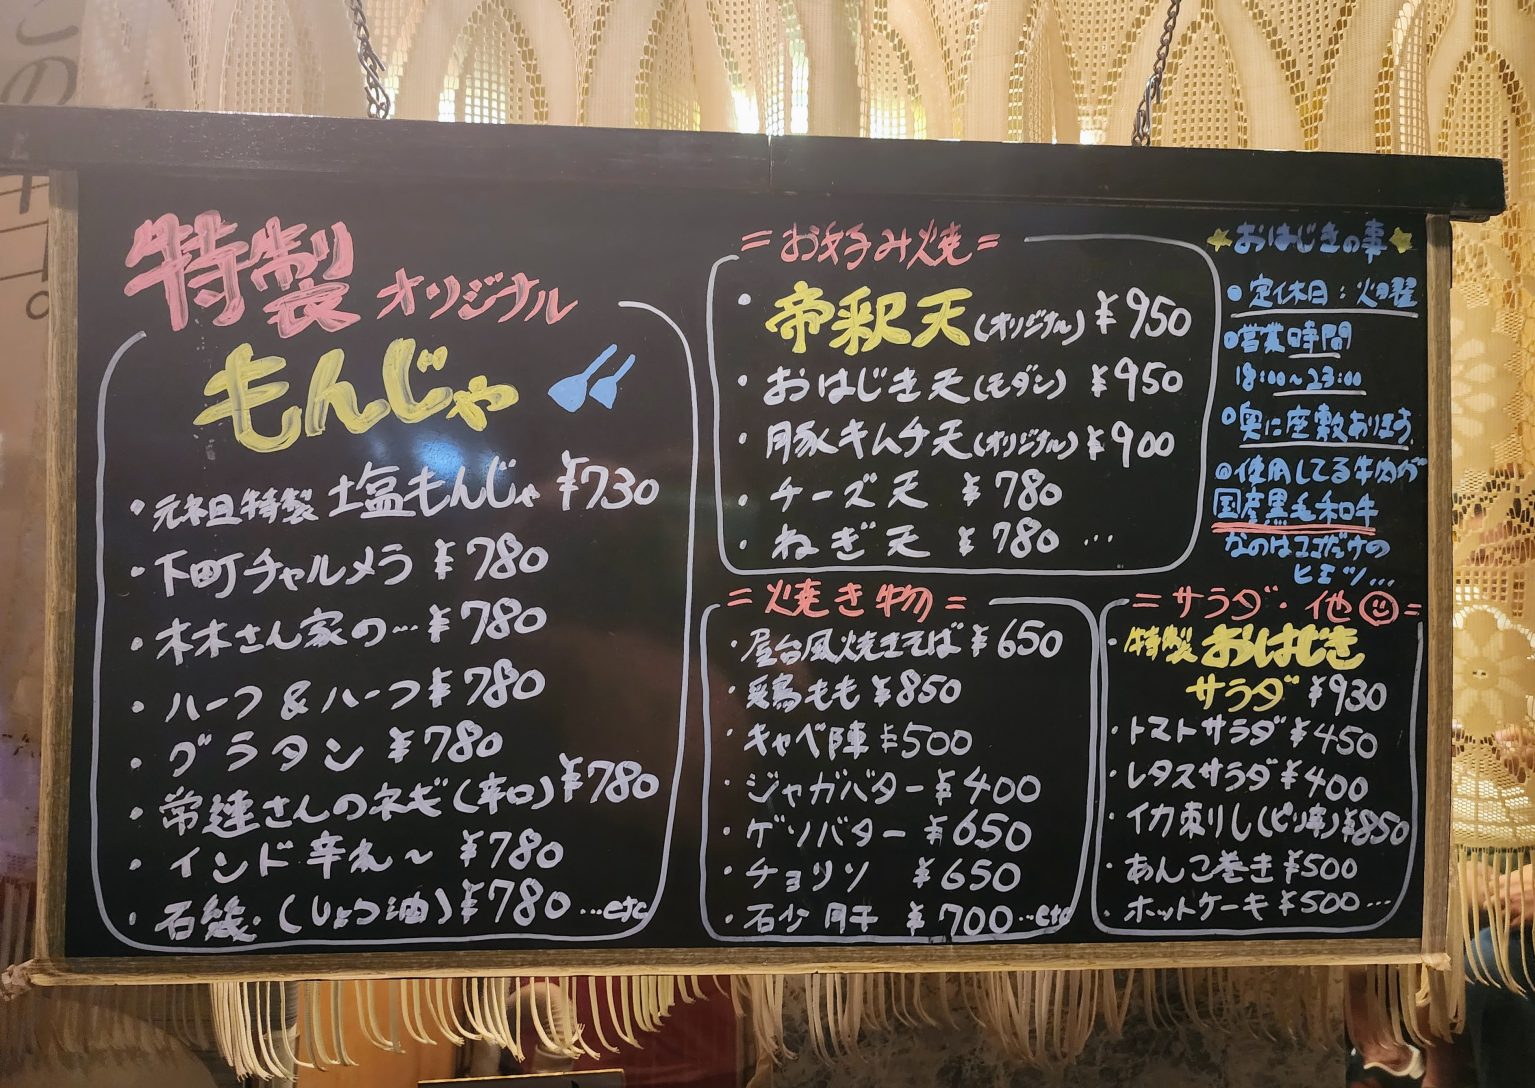 特製 オリジナル
もんじゃ
・元祖特製 塩もんじゃ ¥730
・下町チャルメラ ¥780
・木木さん家の… ¥780
・ハーフ&ハーフ ¥780
・グラタン ¥780
・常連さんのネギ(辛口) ¥780
・インド辛れ〜 ¥780
・石幾.(しょう油) ¥780 …etc
=お好み焼=
・帝釈天(オリジナル) ¥950
・おはじき天(モダン) ¥950
・豚キムチ天(オリジナル) ¥900
・チーズ天 ¥780
・ねぎ天 ¥780 …
=焼き物=
・屋台風焼きそば ¥650
・鶏もも ¥850
・キャベ陣 ¥500
・ジャガバター ¥400
・ゲソバター ¥650
・チョリソ ¥650
・石少肝 ¥700 …etc
★おはじきの事★
●定休日:火曜
●営業時間
18:00〜23:00
●奥に座敷あります
◎使用してる牛肉が
国産黒毛和牛
なのはココだケの
ヒミツ…
=サラダ・他=
・特製 おはじき
サラダ ¥930
・トマトサラダ ¥450
・レタスサラダ ¥400
・イカ刺し(ピリ辛) ¥850
・あんこ巻き ¥500
・ホットケーキ ¥500 …